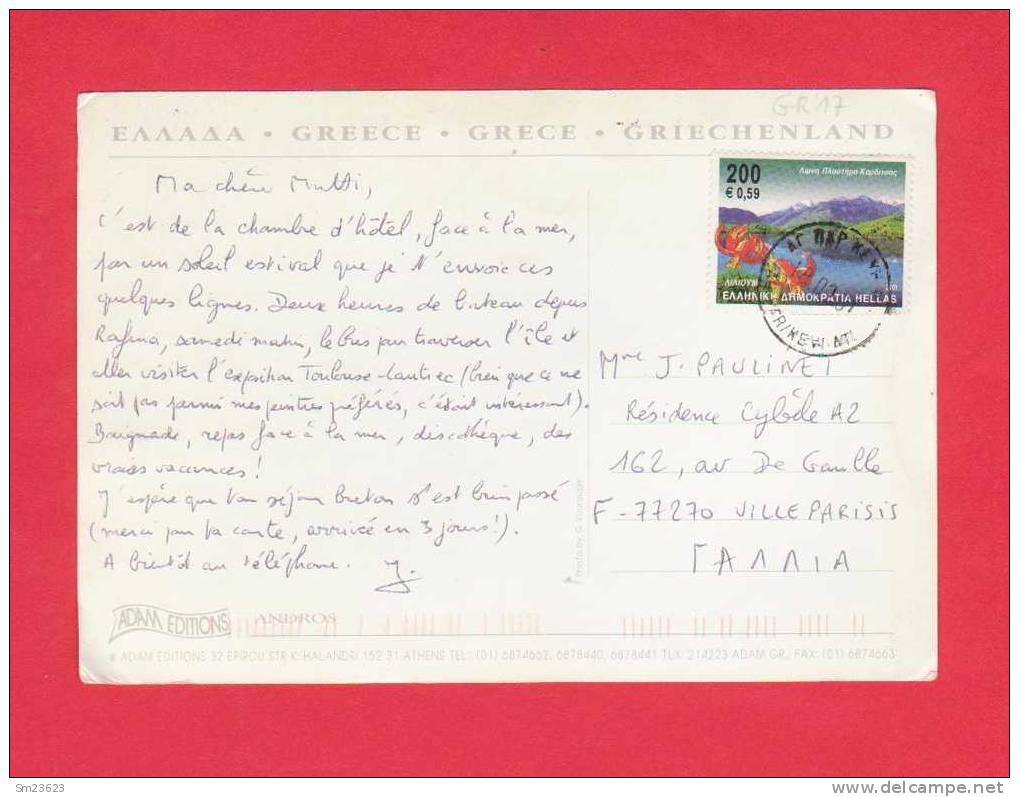 GR 17
ΕΛΛΑΔΑ • GREECE • GRECE • GRIECHENLAND
Ma chère Mutti,
C'est de la chambre d'hôtel, face à la mer,
par un soleil estival que je t'envoie ces
quelques lignes. Deux heures de bateau depuis
Rafina, samedi matin, le bus pour traverser l'île et
aller visiter l'exposition Toulouse-Lautrec (bien que ce ne
soit pas parmi mes peintres préférés, c'était intéressant).
Baignade, repas face à la mer, discothèque, des
vraies vacances!
J'espère que ton séjour breton s'est bien passé
(merci pour ta carte, arrivée en 3 jours!).
A bientôt au téléphone. J.
200
€ 0,59
Λίμνη Πλαστήρα Καρδίτσας
ΛΙΛΙΟΥΜ
ΕΛΛΗΝΙΚΗ ΔΗΜΟΚΡΑΤΙΑ HELLAS
ΑΓ ΠΑΡ
Mme J. PAULINET
Résidence Cybèle A2
162, av De Gaulle
F-77270 VILLEPARISIS
ΓΑΛΛΙΑ
Photo by G. Voutsider
ADAM EDITIONS ANDROS
ADAM EDITIONS 32 EPIROU STR K. HALANDRI 152 31 ATHENS TEL.: (01) 6874652, 6878440, 6878441 TLX: 214223 ADAM GR., FAX: (01) 6874663
Sm23623
delcampe.net